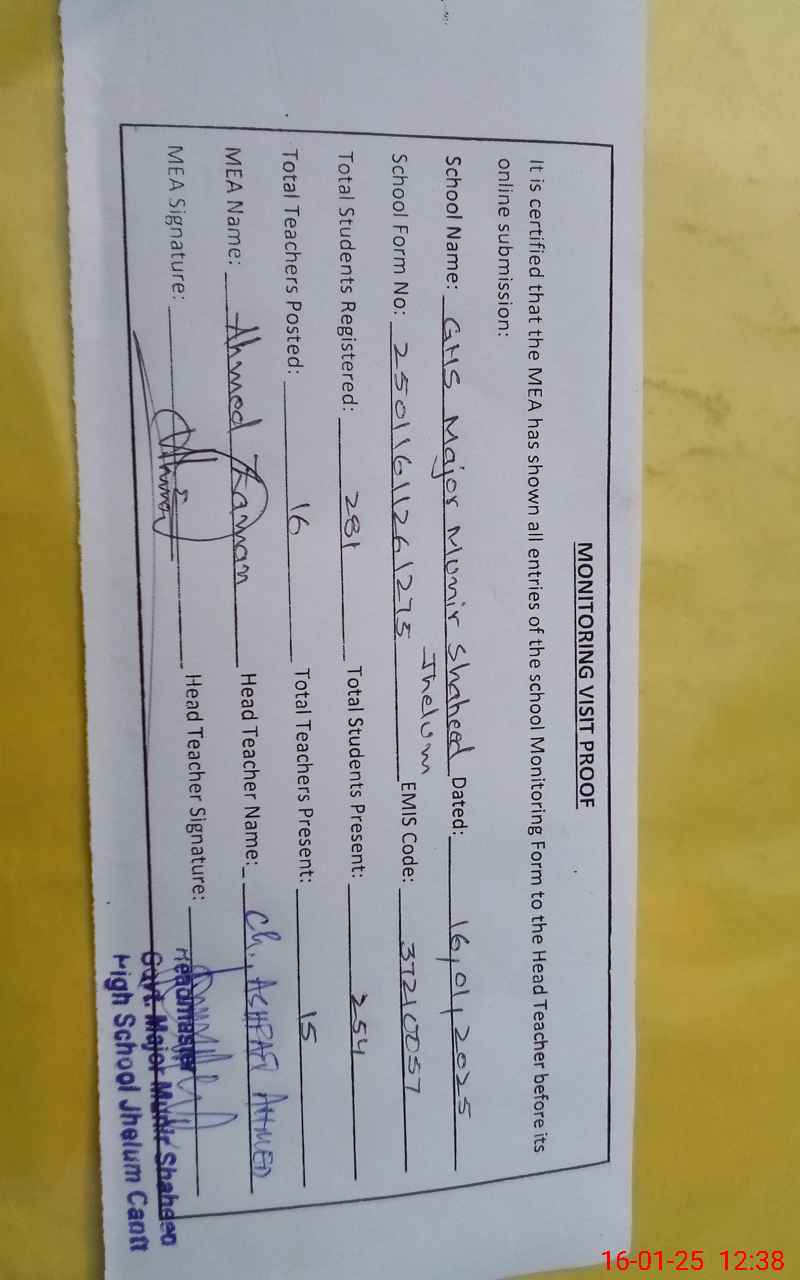 MONITORING VISIT PROOF
It is certified that the MEA has shown all entries of the school Monitoring Form to the Head Teacher before its
online submission:
School Name: GHS Major Munir Shaheed Jhelum Dated: 16,01,2025
School Form No: 25011611261275 EMIS Code: 37210057
Total Students Registered: 281 Total Students Present: 254
Total Teachers Posted: 16 Total Teachers Present: 15
MEA Name: Ahmed Zaman Head Teacher Name: Ch., ASHFAQ AHMED
MEA Signature: Head Teacher Signature:
Headmaster
Govt. Major Munir Shaheed
High School Jhelum Cantt
16-01-25 12:38